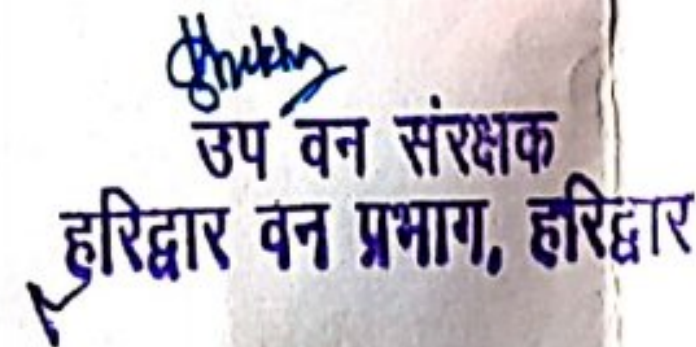 उप वन संरक्षक
हरिद्वार वन प्रभाग, हरिद्वार